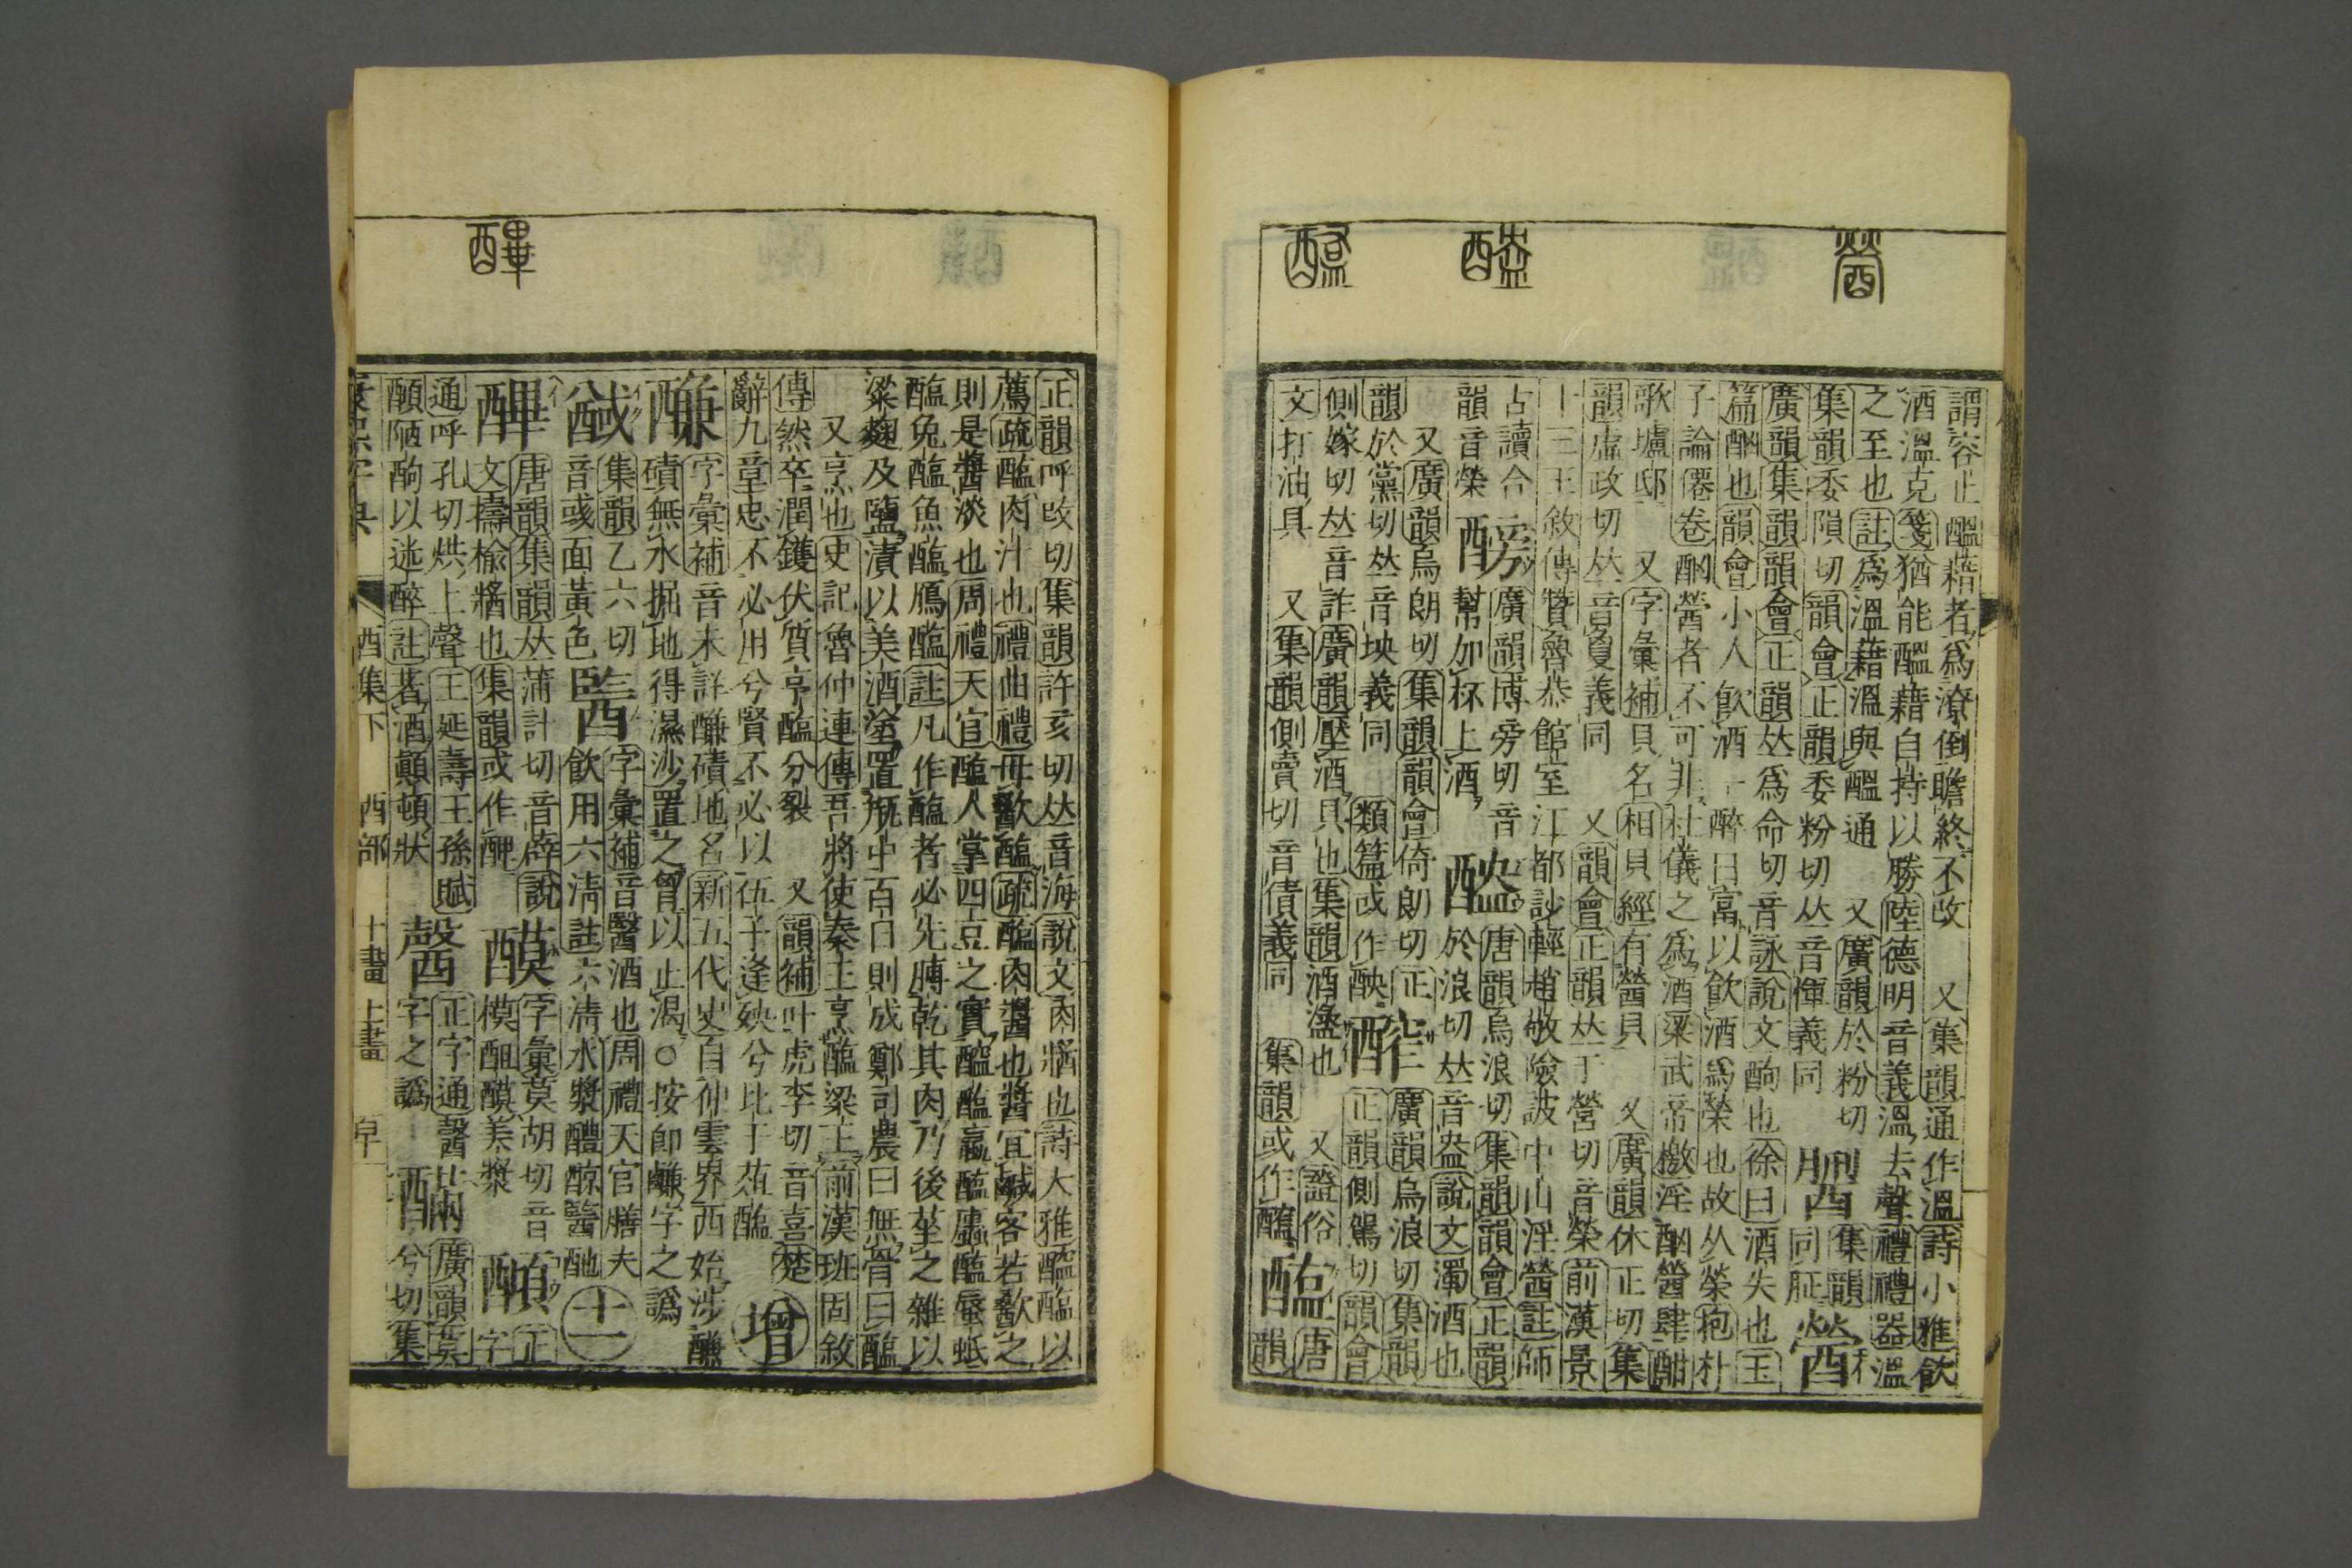 醟
醠
醢
謂容止醞藉者爲潦倒瞻終不改　又集韻通作溫詩小雅飲
酒溫克箋猶能醞藉自持以勝陸德明音義溫去聲禮禮器溫
之至也註爲溫藉溫與醞通　又廣韻於粉切
集韻委隕切韻會正韻委粉切𠀤音惲義同
集韻
同
醟
廣韻集韻韻會正韻𠀤爲命切音詠說文酗也徐曰酒失也玉
篇酗也韻會小人飲酒一醉曰富以飲酒爲榮也故从榮抱朴
子論僊卷酗醟者不可非杜儀之爲酒梁武帝檄淫酗醟肆酣
歌壚邸　又字彙補貝名相貝經有醟貝　又廣韻休正切集
韻虛政切𠀤音夐義同　又韻會正韻𠀤于營切音榮前漢景
十三王敘傳贊魯恭館室江都訬輕趙敬險詖中山淫醟註師
古讀合
韻音榮
廣韻博旁切音
幫加杯上酒
醠
唐韻烏浪切集韻韻會正韻
於浪切𠀤音盎說文濁酒也
又廣韻烏朗切集韻韻會倚朗切正
韻於黨切𠀤音坱義同　類篇或作
醡
廣韻烏浪切集韻
正韻側駕切韻會
側嫁切𠀤音詐廣韻壓酒具也集韻酒盪也　又證俗
文打油具　又集韻側賣切音債義同　集韻或作
醢
唐
韻
醳
正韻呼改切集韻許亥切𠀤音海說文肉牆也詩大雅醓醢以
薦疏醢肉汁也禮曲禮毋歠醢疏醢肉醬也醬宜鹹客若歠之
則是醬淡也周禮天官醢人掌四豆之實醓醢蠃醢蠯醢蜃蚳
醢兔醢魚醢鴈醢註凡作醢者必先膊乾其肉乃後莝之雜以
粱麴及鹽漬以美酒塗置㼽中百日則成鄭司農曰無骨曰醢
又烹也史記魯仲連傳吾將使秦王烹醢梁王前漢班固敘
傳然卒潤鑊伏質亨醢分裂　又韻補叶虎李切音喜楚
辭九章忠不必用兮賢不必以伍子逢殃兮比干菹醢
增
字彙補音未詳醶磧地名新五代史自仲雲界西始涉
磧無水掘地得濕沙置之胷以止渴○按卽鹻字之譌
集韻乙六切
音彧面黃色
字彙補音醫酒也周禮天官膳夫
飲用六淸註六淸水漿醴䣼醫酏
十一
唐韻集韻𠀤蒲計切音薜說
文擣榆牆也集韻或作
字彙莫胡切音
模䣯醾美漿
正
字
通呼孔切烘上聲王延壽王孫賦
陋酗以迷醉註著酒顚頓狀
正字通醫
字之譌
廣韻莫
兮切集
康熙字典　酉集下　酉部　十畫 十一畫